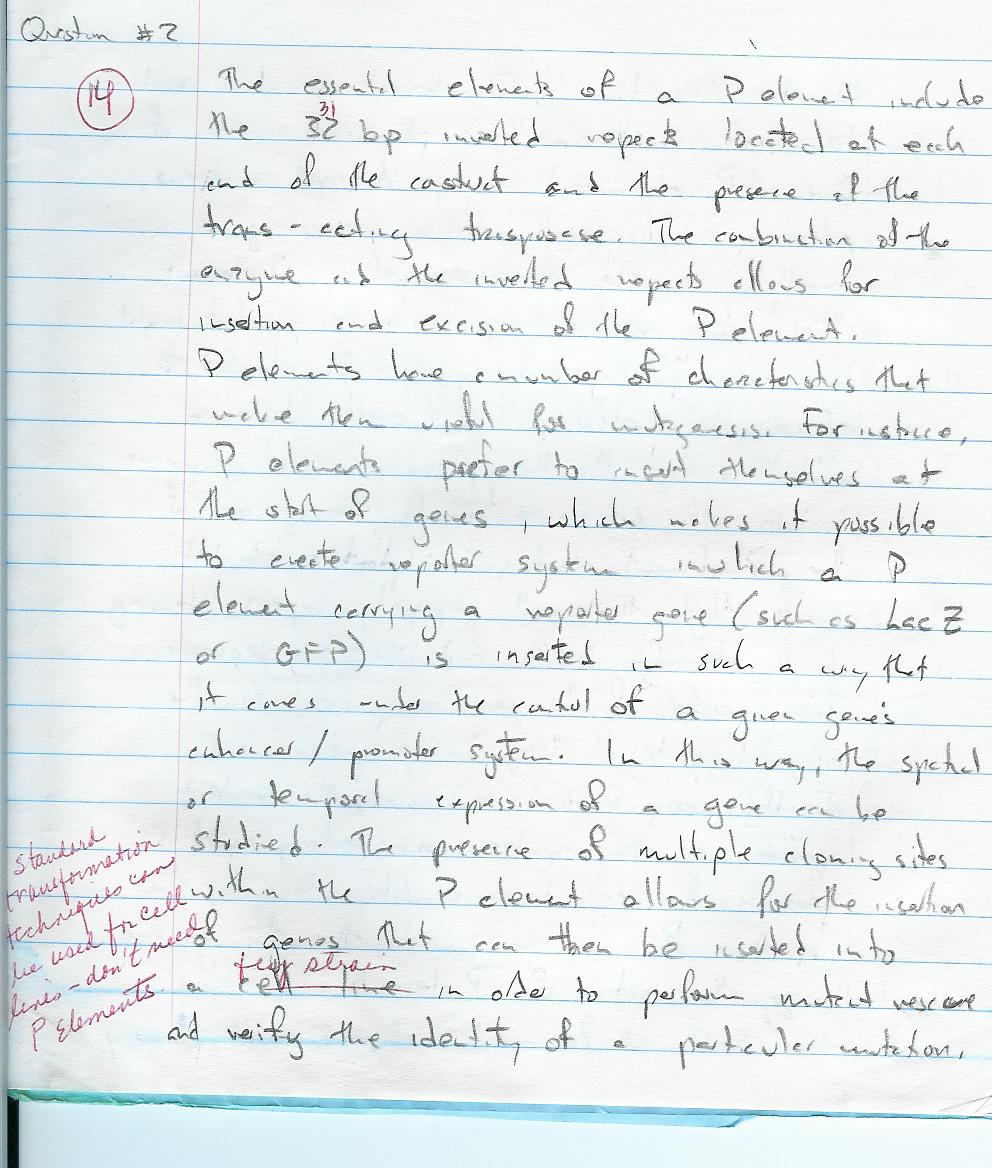 Question #2
14
The essential elements of a P element include
31
the 32 bp inverted repeats located at each
end of the castruct and the presence of the
trans-acting transposase. The combination of the
enzyme and the inverted repeats allows for
insertion and excision of the P element.
P elements have a number of characteristics that
make them useful for mutagenesis. For instance,
P elements prefer to insert themselves at
the start of genes, which makes it possible
to create reporter system in which a P
element carrying a reporter gene (such as Lac Z
or GFP) is inserted in such a way that
it comes under the control of a given gene's
enhancer/promoter system. In this way, the spatial
or temporal expression of a gene can be
studied. The presence of multiple cloning sites
within the P element allows for the insertion
of genes that can then be inserted into
fly strain
a cell line in order to perform mutant rescue
and verify the identity of a particular mutation.
Standard
transformation
techniques can
be used for cell
lines - don't need
P Elements.